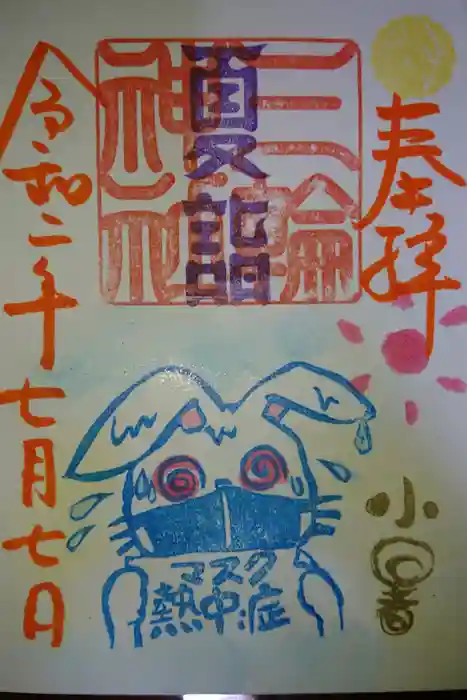 奉拝
小暑
三輪
神社
夏詣
マスク
熱中症
令和二年七月七日